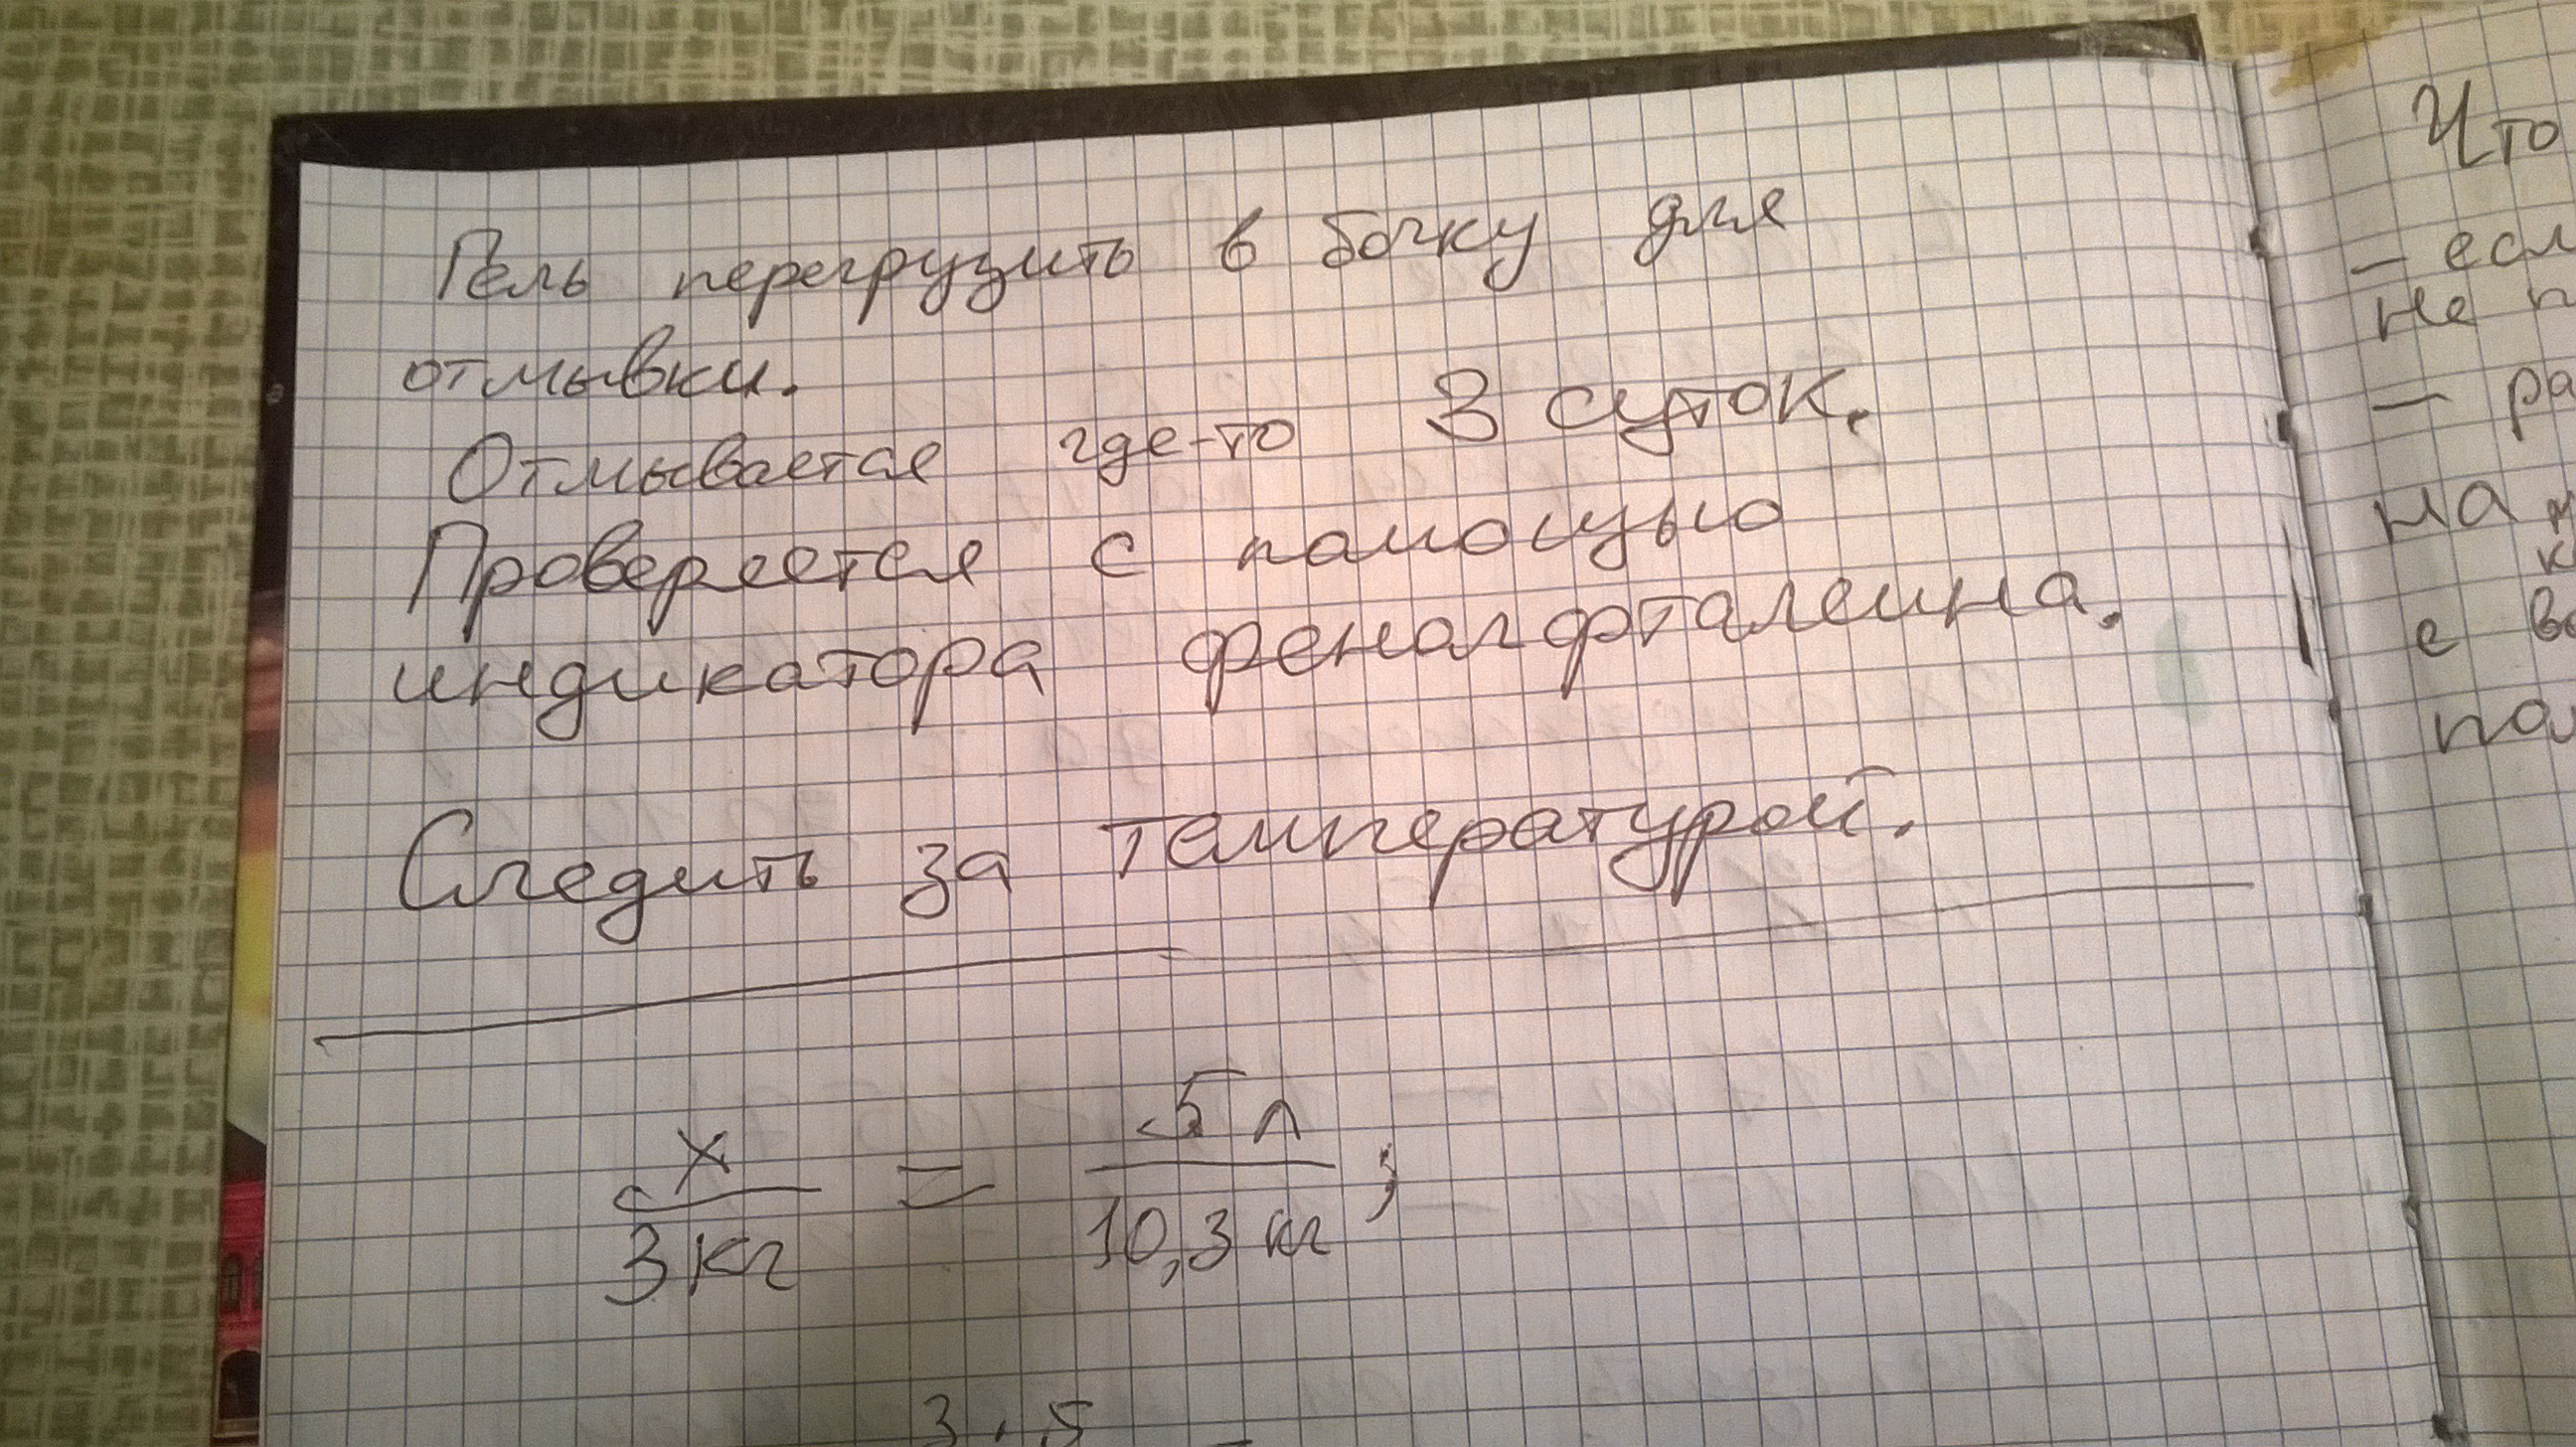 Гель перегрузить в бочку для
отмывки.
Отмывается где-то 3 суток.
Проверяется с помощью
индикатора фенолфталеина.
Следить за температурой.
x/3 кг = 5 л/10,3 кг;
3 · 5
Что
— есл
не п
— ра
на
к
с во
пол